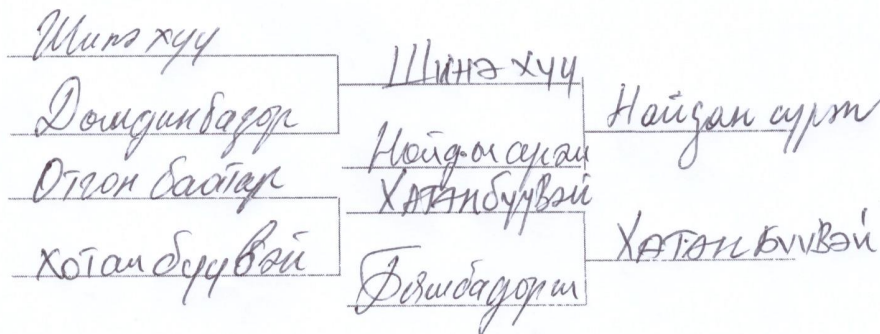 Шинэ хүү
Домдинбазар
Отгон баатар
Хотан буувэй
Шинэ хүү
Найдан сүрэн
ХАТАН буувэй
Бямбадорж
Найдан сүрэн
ХАТАН БУУВЭЙ